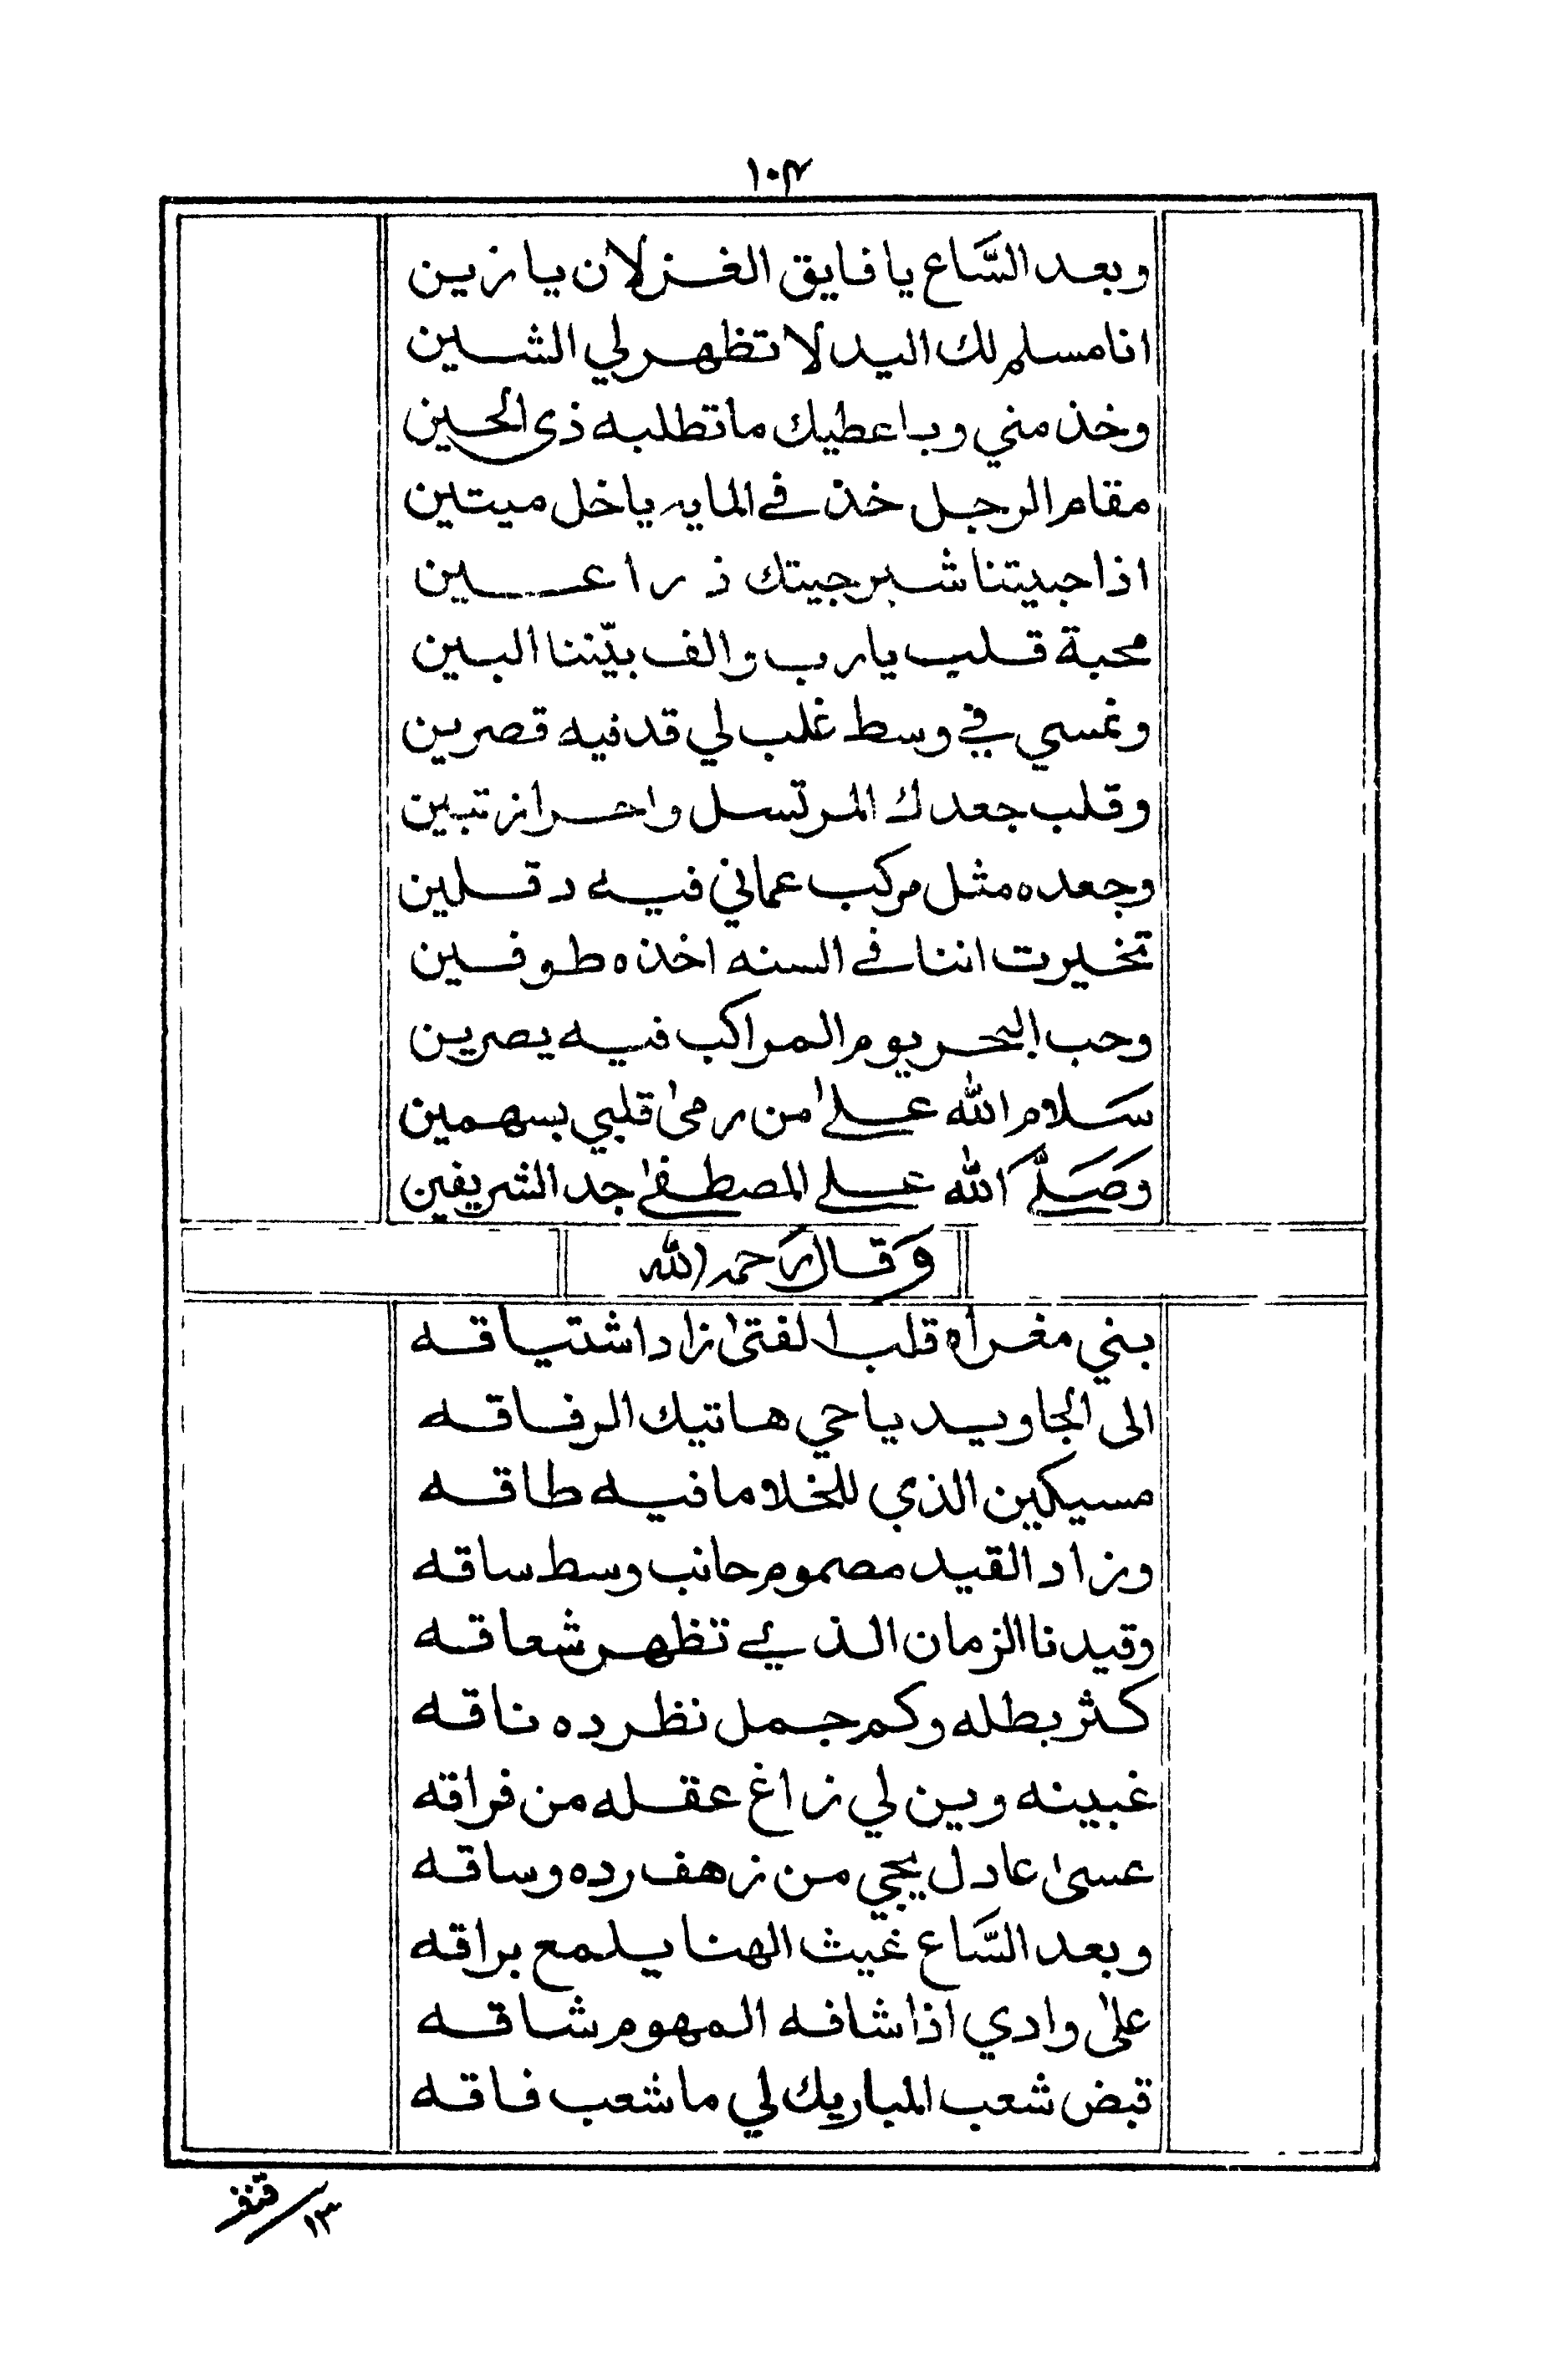 ١٠٣
وبعد السَّاع يا فايق الغزلان يا زين
انا مسلم لك اليد لا تظهر لي الشين
وخذ مني وباعطيك ما تطلبه ذى الحين
مقام الرجل خذ في المايه يا خل ميتين
اذا جيتنا شبر جيتك ذراعين
محبة قلب يارب والف بيّننا البين
ونمسي في وسط غلب لي قد فيه قصرين
وقلب جعدك المرتسل واحراز تبين
وجعده مثل مركب عماني فيه دقلين
تخيرت اننا في السنه اخذه طوفين
وحب البحر يوم المراكب فيه يصرين
سَلام الله على من رمى قلبي بسهمين
وَصَلَّ الله على المصطفى جد الشريفين
وَقال رَحمه الله
بني مغراه قلب الفتى زاد اشتياقه
الى الجاويد ياحي هاتيك الرفاقه
مسيكين الذي للخلا ما فيه طاقه
وزاد القيد مصموم حانب وسط ساقه
وقيدنا الزمان الذي تظهر شعاقه
كثر بطله وكم جمل نظرده ناقه
غبينه وين لي زاغ عقله من فراقه
عسى عادل يجي من زهف رده وساقه
وبعد السَّاع غيث الهنا يلمع براقه
على وادي اذا شافه المهوم شاقه
قبض شعب المباريك لي ما شعب فاقه
١٣